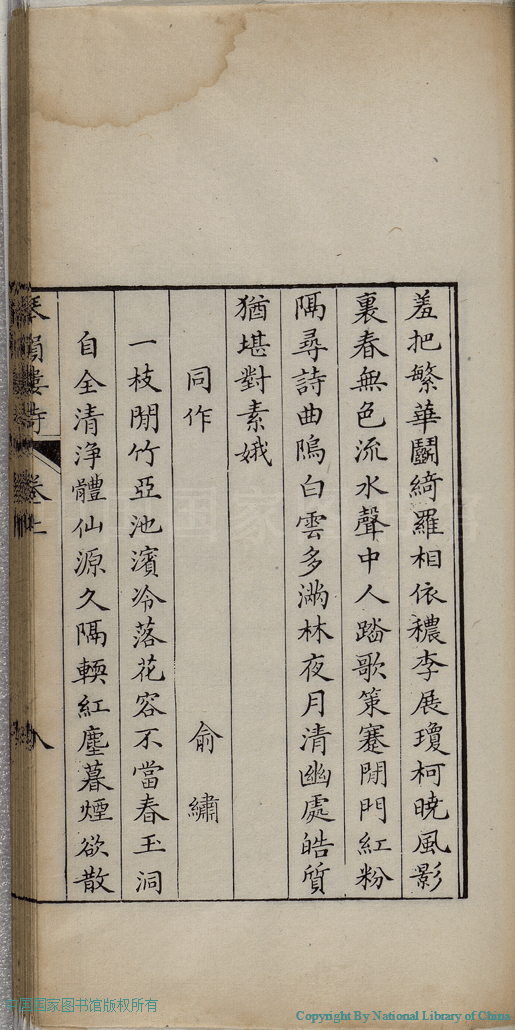 羞把繁華鬭綺羅相依穠李展瓊柯曉風影
裏春無色流水聲中人踏歌策蹇閒門紅粉
隔尋詩曲隖白雲多滿林夜月清幽處皓質
猶堪對素娥
同作 俞繡
一枝閒竹亞池濱冷落花容不當春玉洞
自全清淨體仙源久隔輭紅塵暮煙欲散
琴韻樓詩 卷上 八
中国国家图书馆版权所有
Copyright By National Library of China